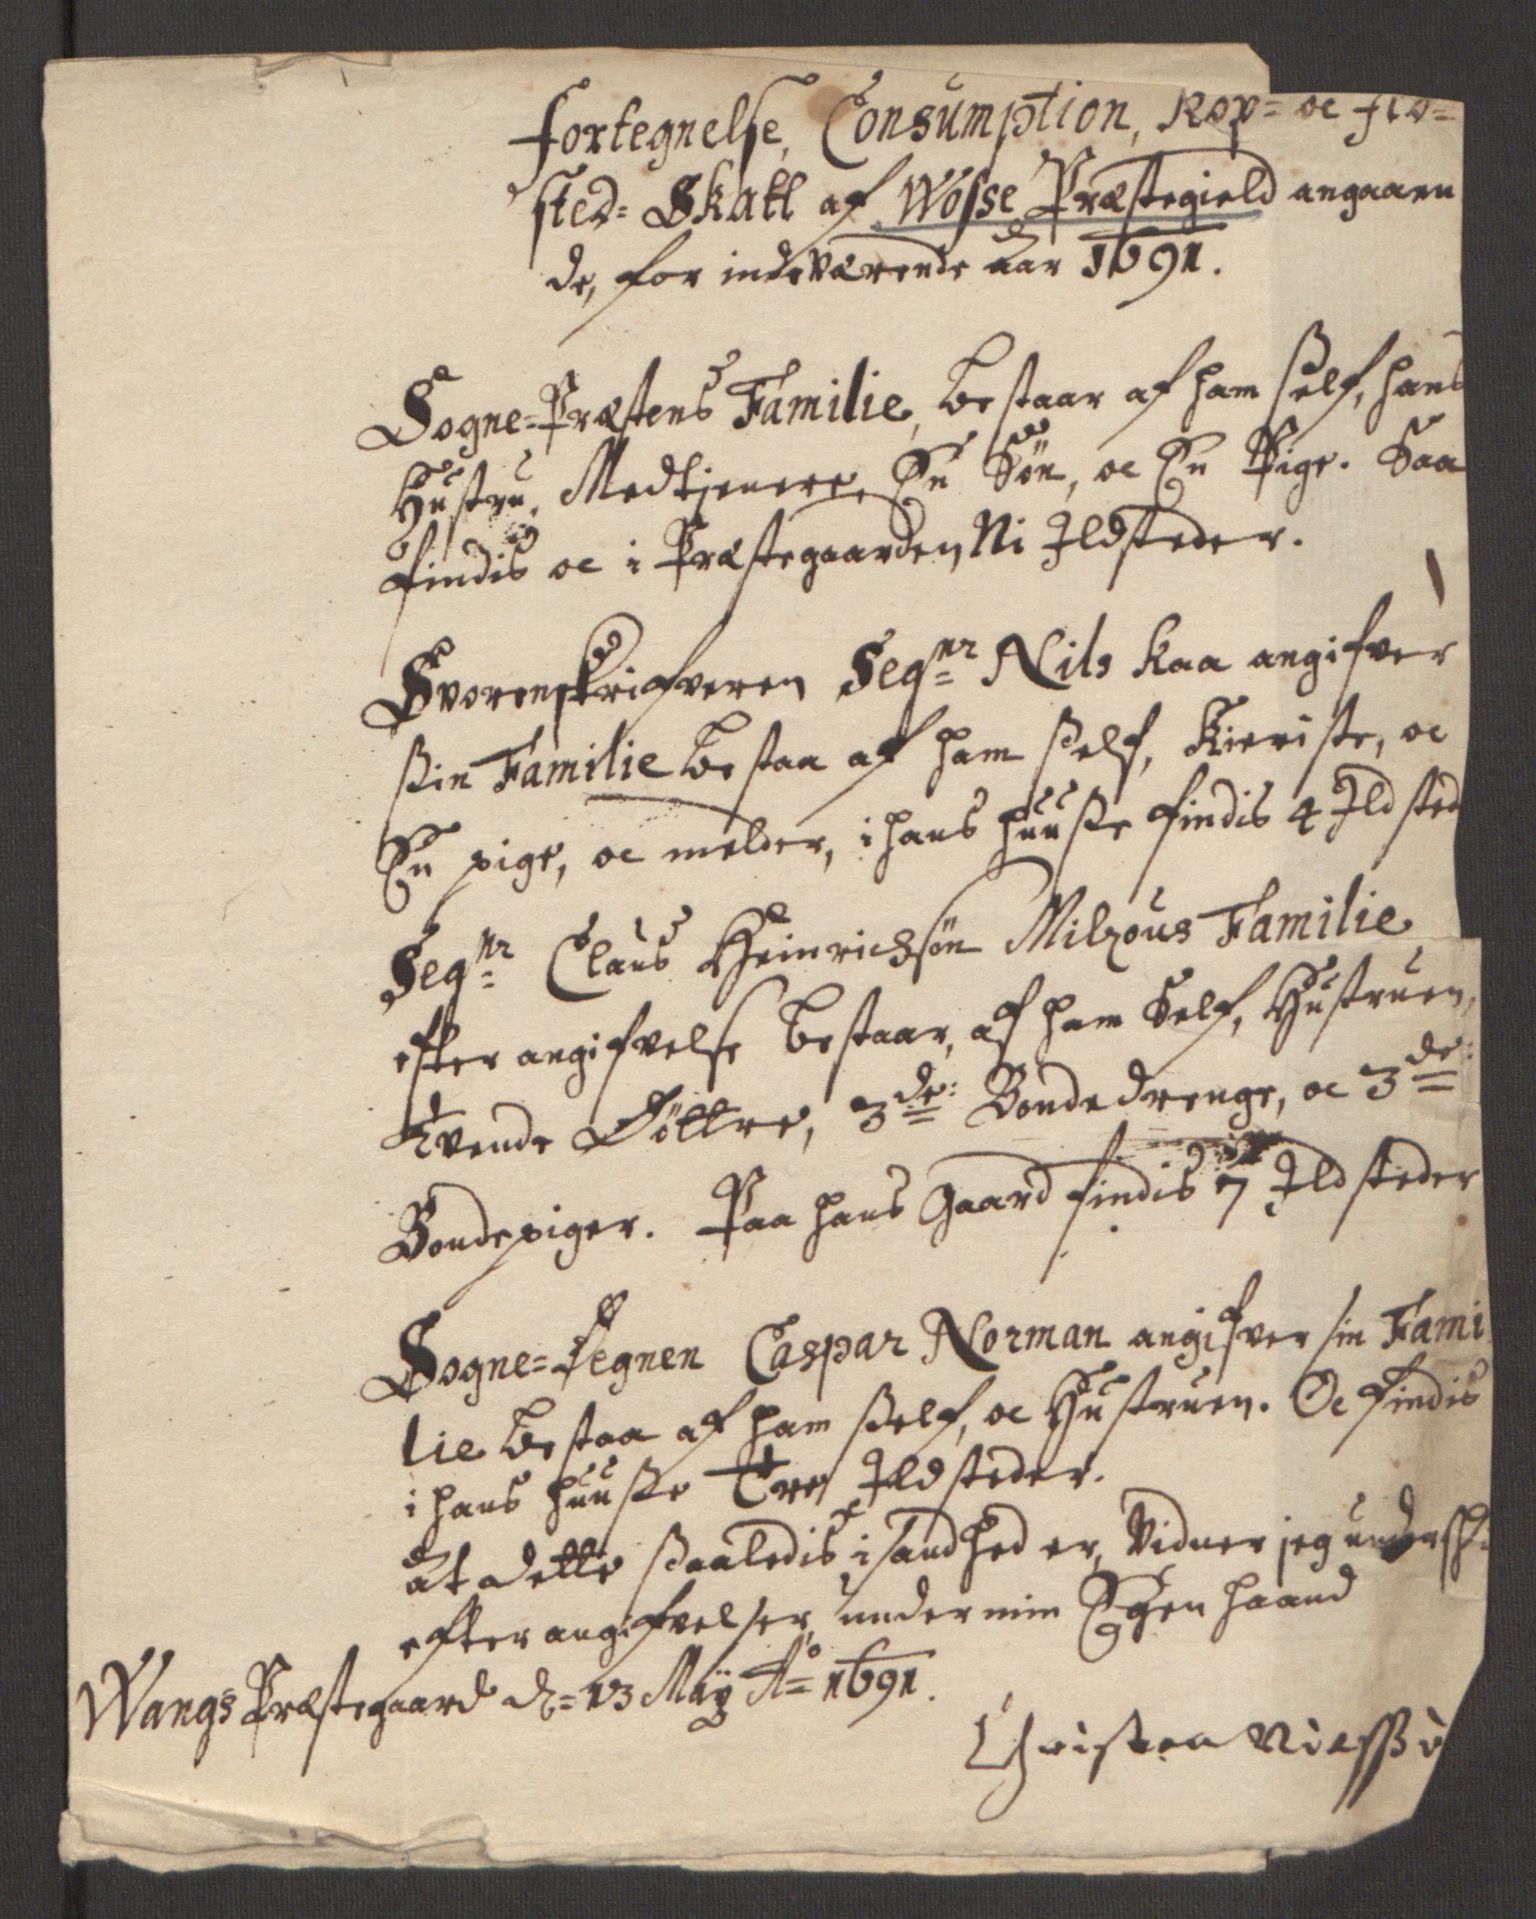 Fortegnelse, Consumption, Kop= oc Ild=
sted= Skatt af Wosse Præstegield angaaen
de, for indeværende Aar 1691.
Sogne=Præstens Familie, bestaar af ham self, hans
Hustru, Medtjenere, En Søn, oc En Pige. Saa
findis oc i Præstegaarden Ni Ildsteder.
Svorenskrifveren Seig.nr Nils Kaa angifver
sin Familie bestaa af ham self, Kieriste, oc
En pige, oc melder, i hans huusse findis 4 Ildsted
Seig.nr Claus Heinrichsøn Milzous Familie
efter angifvelse bestaar, af ham Self, Hustruen,
tvende Døttre, 3de: Bondedrenge, oc 3de:
Bondepiger. Paa hans Gaard findis 7 Ildsteder
Sogne=Degnen Caspar Norman angifver sin Fami
lie bestaa af ham self, oc Hustruen. Oc findis
i hans huusse Tre Ildsteder.
At dette saaledis i sandhed er, Vidner jeg undersk:
efter angifvelser, under min Egen haand
Wangs Præstegaard d= 13 Maÿ Ao 1691.
Christen